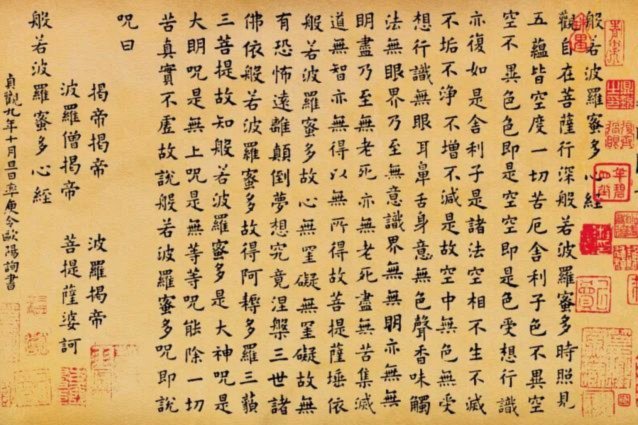 般若波羅蜜多心經
觀自在菩薩行深般若波羅蜜多時照見
五蘊皆空度一切苦厄舍利子色不異空
空不異色色即是空空即是色受想行識
亦復如是舍利子是諸法空相不生不滅
不垢不淨不增不減是故空中無色無受
想行識無眼耳鼻舌身意無色聲香味觸
法無眼界乃至無意識界無無明亦無無
明盡乃至無老死亦無老死盡無苦集滅
道無智亦無得以無所得故菩提薩埵依
般若波羅蜜多故心無罣礙無罣礙故無
有恐怖遠離顛倒夢想究竟涅槃三世諸
佛依般若波羅蜜多故得阿耨多羅三藐
三菩提故知般若波羅蜜多是大神呪是
大明呪是無上呪是無等等呪能除一切
苦真實不虛故說般若波羅蜜多呪即說
呪曰
揭帝揭帝 波羅揭帝
波羅僧揭帝 菩提薩婆訶
般若波羅蜜多心經
貞觀九年十月旦日率更令歐陽詢書